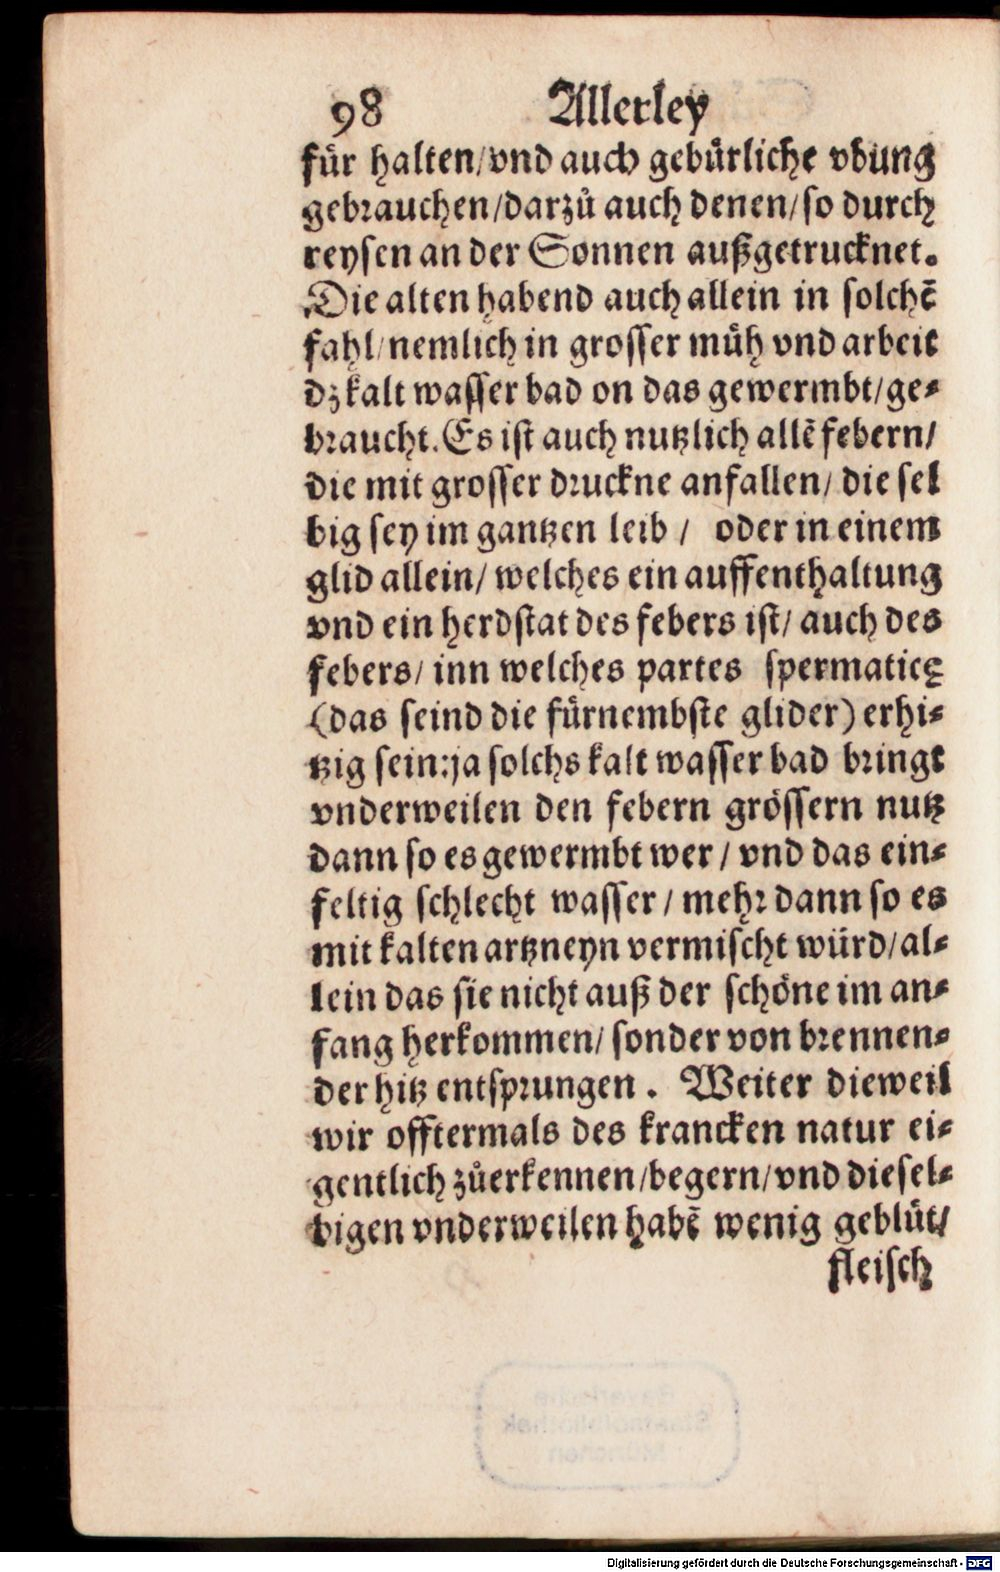 98 Allerley
für halten/vnd auch gebürliche vbung
gebrauchen/darzů auch denen/so durch
reysen an der Sonnen außgetrucknet.
Die alten habend auch allein in solchẽ
fahl/nemlich in grosser müh vnd arbeit
dz kalt wasser bad on das gewermbt/ge-
braucht. Es ist auch nutzlich allẽ febern/
die mit grosser druckne anfallen/die sel
big sey im gantzen leib / oder in einem
glid allein/ welches ein auffenthaltung
vnd ein herdstat des febers ist/ auch des
febers/ inn welches partes spermaticę
(das seind die fürnembste glider) erhi-
tzig sein:ja solchs kalt wasser bad bringt
vnderweilen den febern grössern nutz
dann so es gewermbt wer / vnd das ein-
feltig schlecht wasser / mehr dann so es
mit kalten artzneyn vermischt würd/al-
lein das sie nicht auß der schöne im an-
fang herkommen/ sonder von brennen-
der hitz entsprungen . Weiter dieweil
wir offtermals des krancken natur ei-
gentlich zůerkennen/begern/vnd diesel-
bigen vnderweilen habẽ wenig geblüt/
fleisch
Bayerische
Staatsbibliothek
München
Digitalisierung gefördert durch die Deutsche Forschungsgemeinschaft - DFG